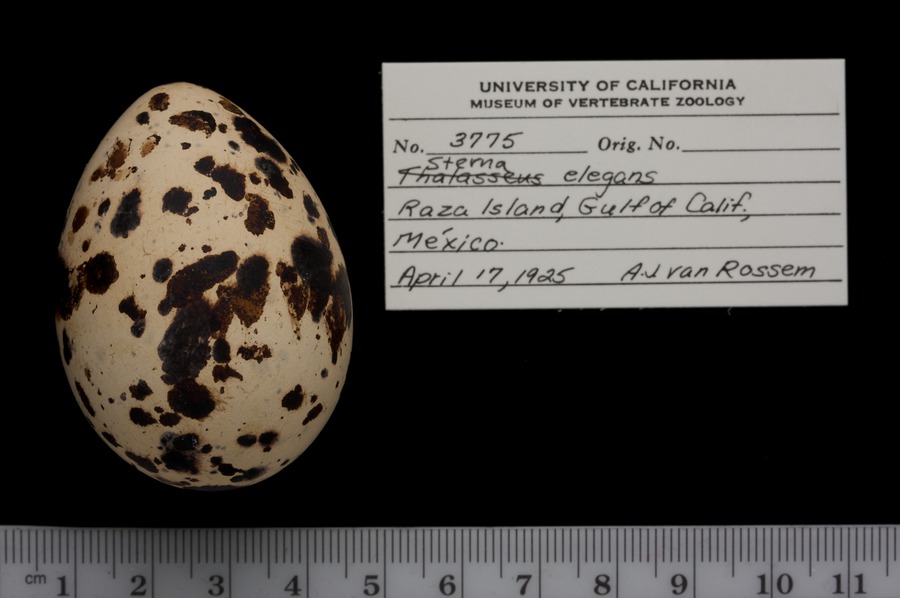 UNIVERSITY OF CALIFORNIA
MUSEUM OF VERTEBRATE ZOOLOGY
No. 3775 Orig. No.
Sterna
Thalasseus elegans
Raza Island, Gulf of Calif.,
México.
April 17, 1925 A.J van Rossem
cm 1 2 3 4 5 6 7 8 9 10 11